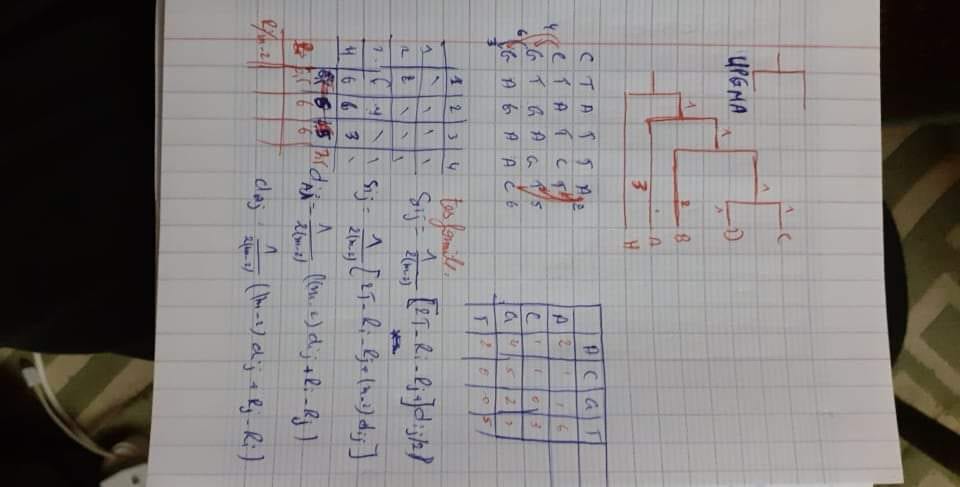 UPGMA
1 C
1
1 D
1
2 B
1
A
3 H
C T A T T A 2
C T A T C T
4 G T G A G T 5
6 G A G A A C 6
3
A C G T
A 2 1 1 6
C 1 1 0 3
G 4 5 2
T 2 0 0 5
1 2 3 4
1 \ \ \ \
2 2 \ \ \
4 \ \
4 6 6 3 \
5 7,5
6,5 6 6
R/m-2
les formile.
Sij = 1/2(m-2) [2T - Ri - Rj + ] dij/2
Sij = 1/2(m-2) [2T - Ri - Rj + (m-2) dij]
= 1/2(m-2) ((m-2) dij + Ri - Rj)
d2j = 1/2(m-2) ((m-2) dij + Rj - Ri)